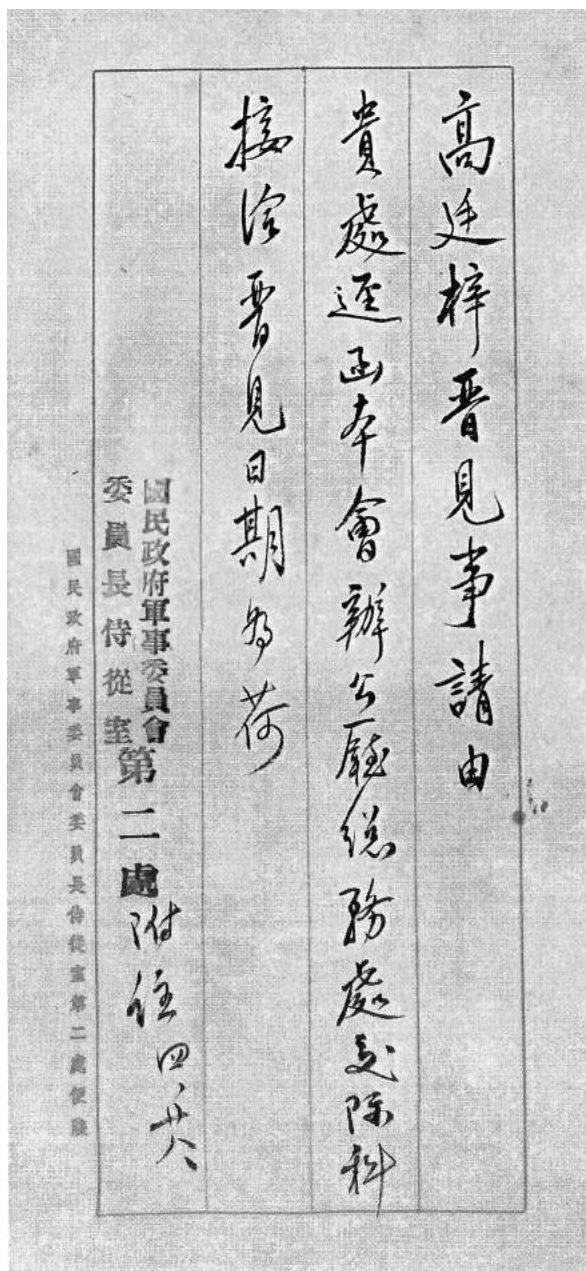 高廷梓晋見事請由
貴處逕函本會辦公廳總務處交際科
接洽晋見日期為荷
國民政府軍事委員會
委員長侍從室第二處附注四、廿八、
國民政府軍事委員會委員長侍從室第二處便牋